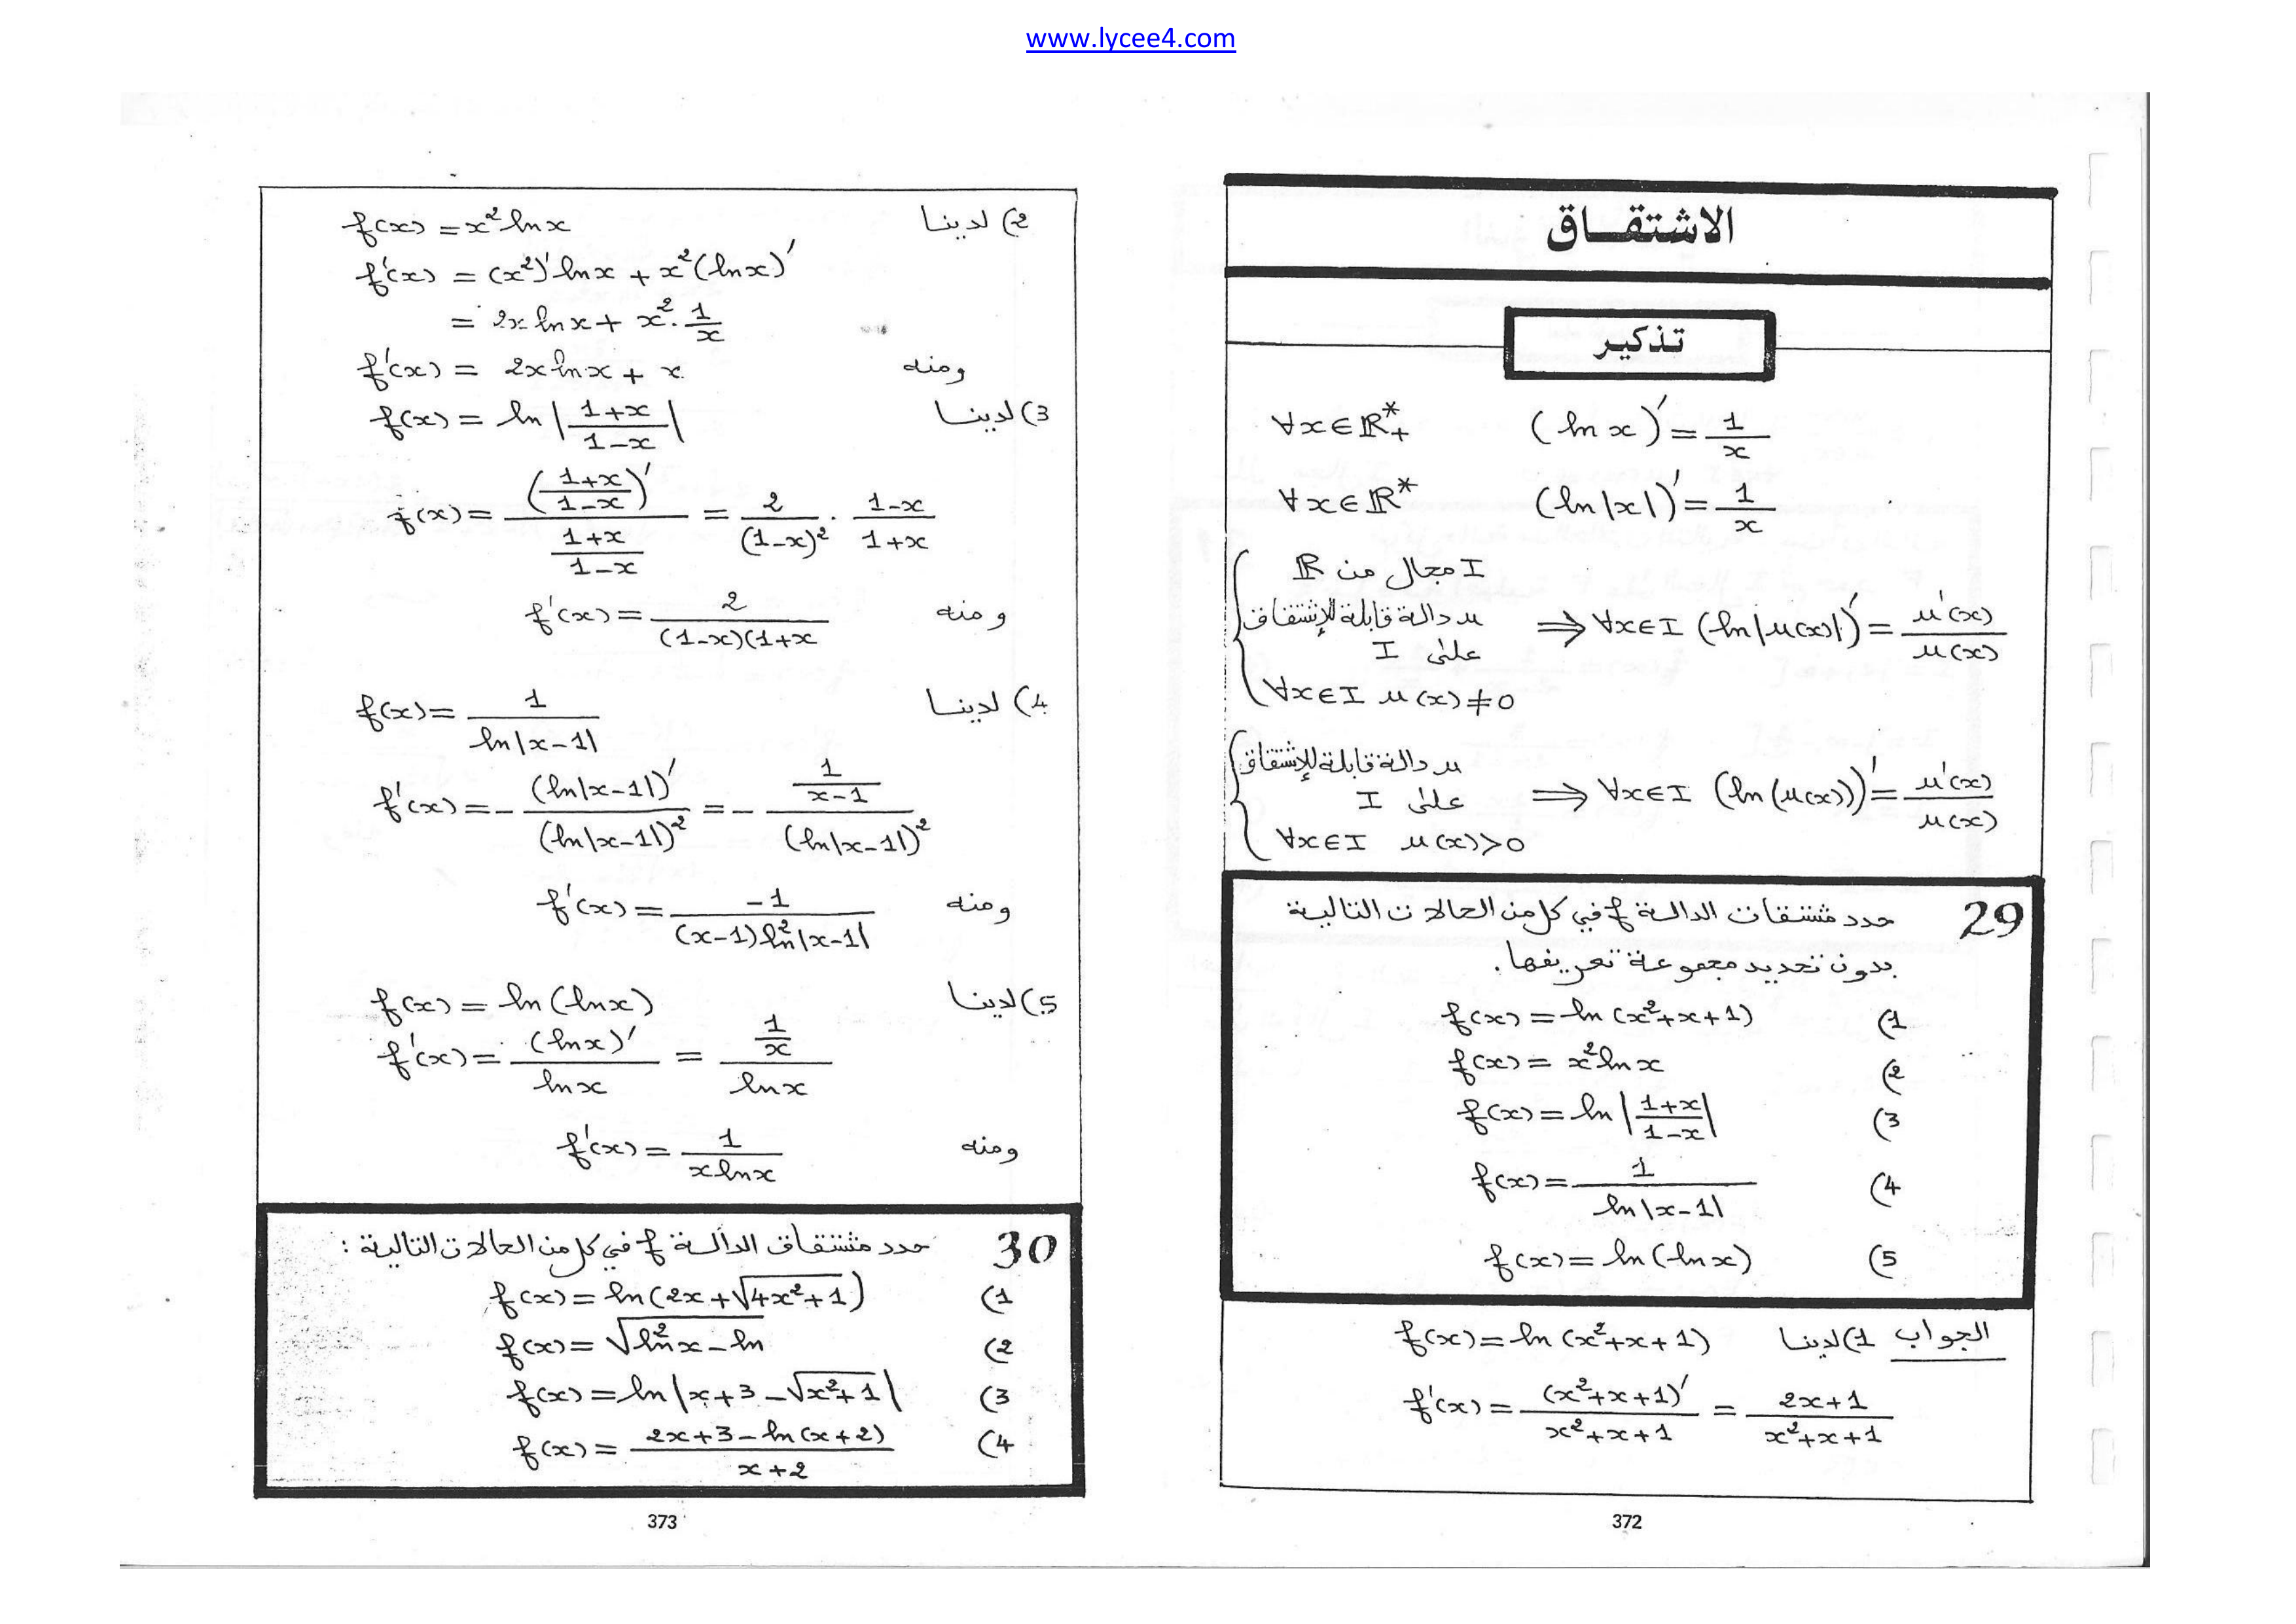 www.lycee4.com
الاشتقاق
تذكير
∀x∈ℝ*₊ (ln x)' = 1/x
∀x∈ℝ* (ln|x|)' = 1/x
I مجال من ℝ
u دالة قابلة للإشتقاق على I
∀x∈I u(x)≠0
⟹ ∀x∈I (ln|u(x)|)' = u'(x)/u(x)
u دالة قابلة للإشتقاق على I
∀x∈I u(x)>0
⟹ ∀x∈I (ln(u(x)))' = u'(x)/u(x)
29 حدد مشتقات الدالة f في كل من الحالات التالية
بدون تحديد مجموعة تعريفها.
(1 f(x) = ln(x²+x+1)
(2 f(x) = x² ln x
(3 f(x) = ln|(1+x)/(1-x)|
(4 f(x) = 1/(ln|x-1|)
(5 f(x) = ln(ln x)
الجواب 1) لدينا f(x) = ln(x²+x+1)
f'(x) = (x²+x+1)'/(x²+x+1) = (2x+1)/(x²+x+1)
372
2) لدينا f(x) = x² ln x
f'(x) = (x²)' ln x + x²(ln x)'
= 2x ln x + x². 1/x
ومنه f'(x) = 2x ln x + x
3) لدينا f(x) = ln|(1+x)/(1-x)|
f(x) = ((1+x)/(1-x))'/((1+x)/(1-x)) = 2/(1-x)² . (1-x)/(1+x)
ومنه f'(x) = 2/(1-x)(1+x
4) لدينا f(x) = 1/(ln|x-1|)
f'(x) = - (ln|x-1|)'/(ln|x-1|)² = - (1/(x-1))/(ln|x-1|)²
ومنه f'(x) = -1/((x-1)ln²|x-1|)
5) لدينا f(x) = ln(ln x)
f'(x) = (ln x)'/(ln x) = (1/x)/(ln x)
ومنه f'(x) = 1/(x ln x)
30 حدد مشتقاق الدالة f في كل من الحالات التالية :
(1 f(x) = ln(2x+√(4x²+1))
(2 f(x) = √(ln²x - ln)
(3 f(x) = ln|x+3-√(x²+1)|
(4 f(x) = (2x+3-ln(x+2))/(x+2)
373